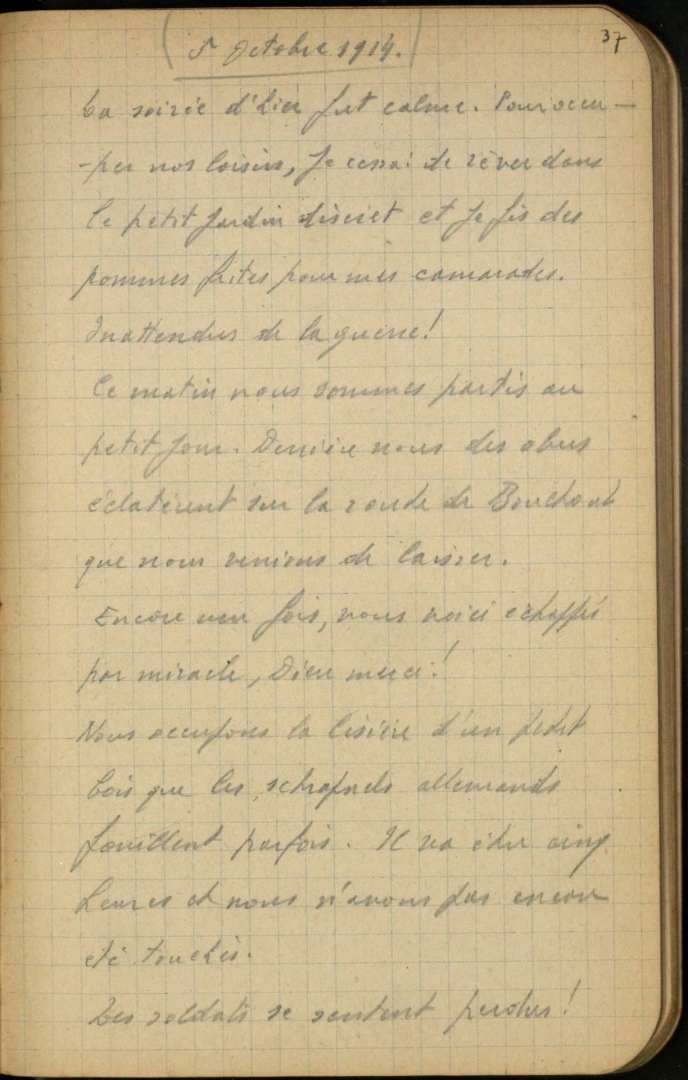 37
5 Octobre 1914.
La soirée d'hier fut calme. Pour occu-
-per nos loisirs, je cessai de rêver dans
le petit jardin discret et je fis des
pommes frites pour mes camarades.
Inattendus de la guerre!
Ce matin nous sommes partis au
petit jour. Derrière nous des obus
éclatèrent sur la route de Bouchout
que nous venions de laisser.
Encore une fois, nous voici echappés
par miracle, Dieu merci!
Nous occupons la lisière d'un petit
bois que les schrapnels allemands
fouillent parfois. Il va être cinq
heures et nous n'avons pas encore
été touchés.
Les soldats se sentent perdus!